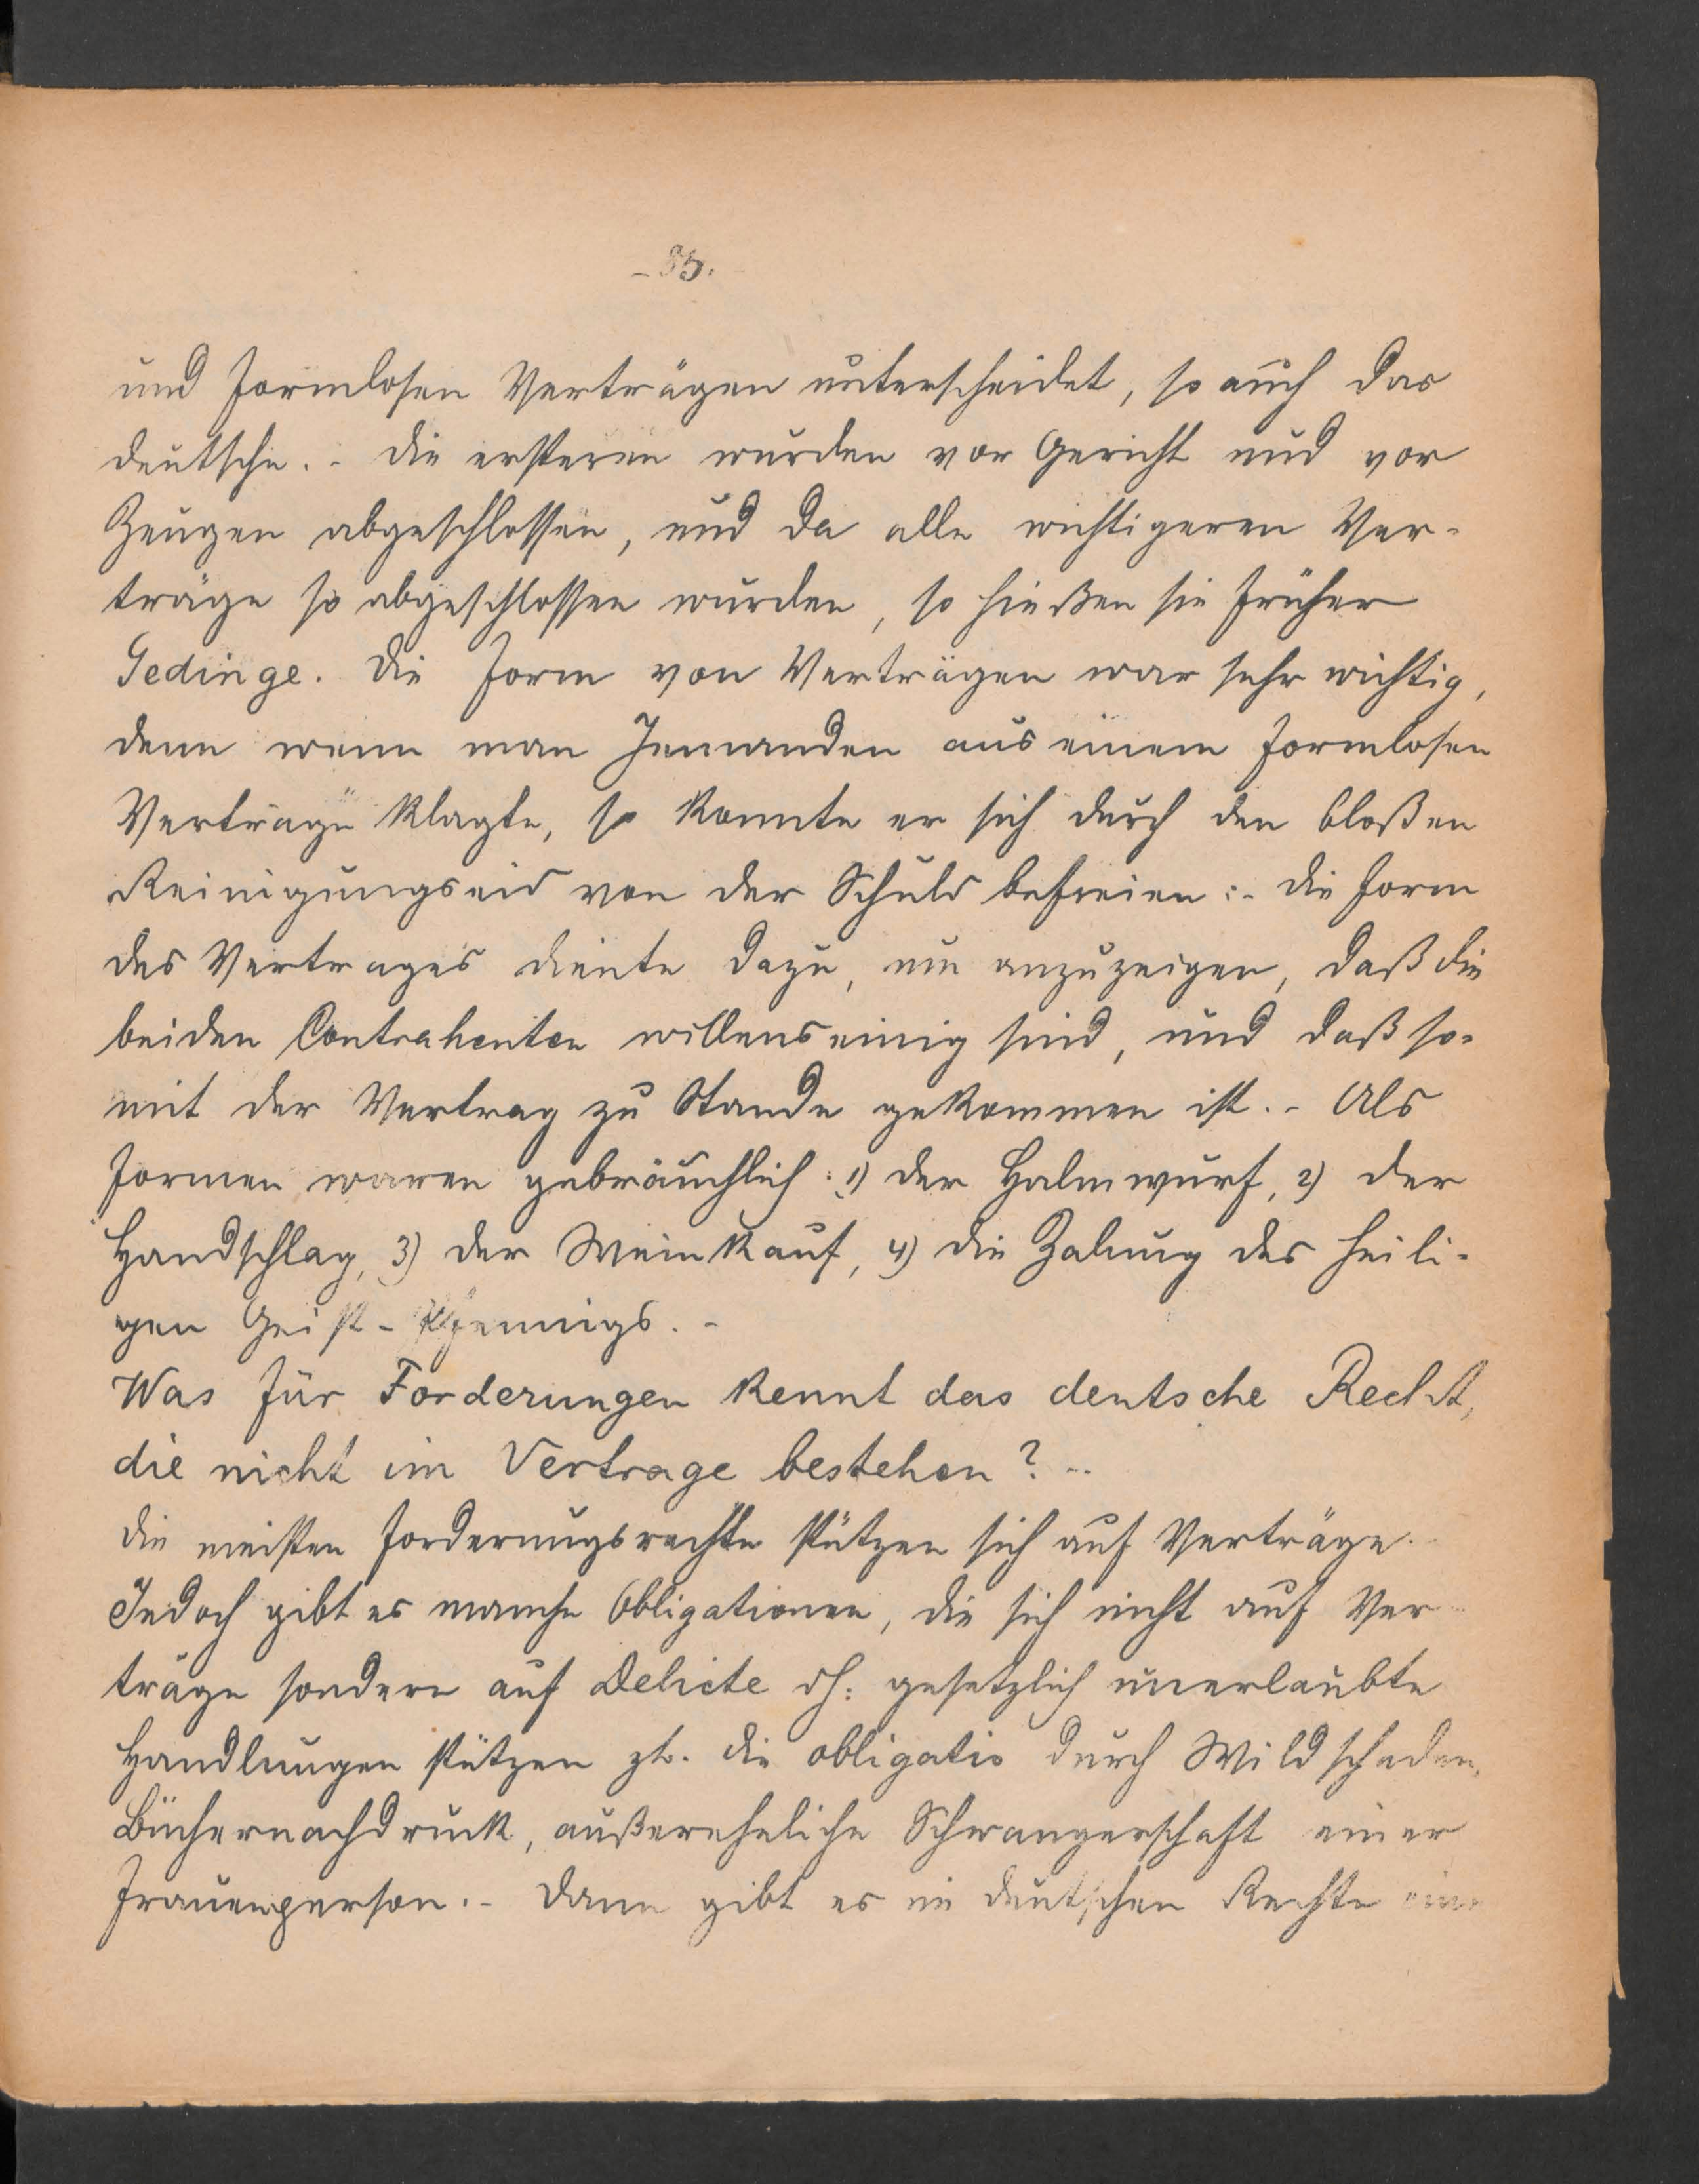 - 85.
und formlosen Verträgen unterscheidet, so auch das
deutsche. - Die ersteren wurden vor Gericht und vor
Zeugen abgeschlossen, und da alle wichtigeren Ver-
träge so abgeschlossen wurden, so hießen sie früher
Gedinge. Die Form von Verträgen war sehr wichtig,
denn wenn man Jemanden aus einem formlosen
Vertrage klagte, so konnte er sich durch den bloßen
Reinigungseid von der Schuld befreien :- Die Form
des Vertrages diente dazu, um anzuzeigen, daß die
beiden Contrahenten willenseinig sind, und daß so-
mit der Vertrag zu Stande gekommen ist. - Als
Formen waren gebräuchlich: 1) der Halmwurf, 2) der
Handschlag, 3) der Weinkauf, 4) die Zalung des heili-
gen Geist-Pfennigs. -
Was für Forderungen kennt das deutsche Recht,
die nicht im Vertrage bestehen? -
Die meisten Forderungsrechte stützen sich auf Verträge.
Jedoch gibt es manche Obligationen, die sich nicht auf Ver-
träge sondern auf Delicte dh: gesetzlich unerlaubte
Handlungen stützen zb. die obligatio durch Wildschaden,
Büchernachdruck, außereheliche Schwangerschaft einer
Frauenperson. - Dann gibt es im deutschen Rechte eine